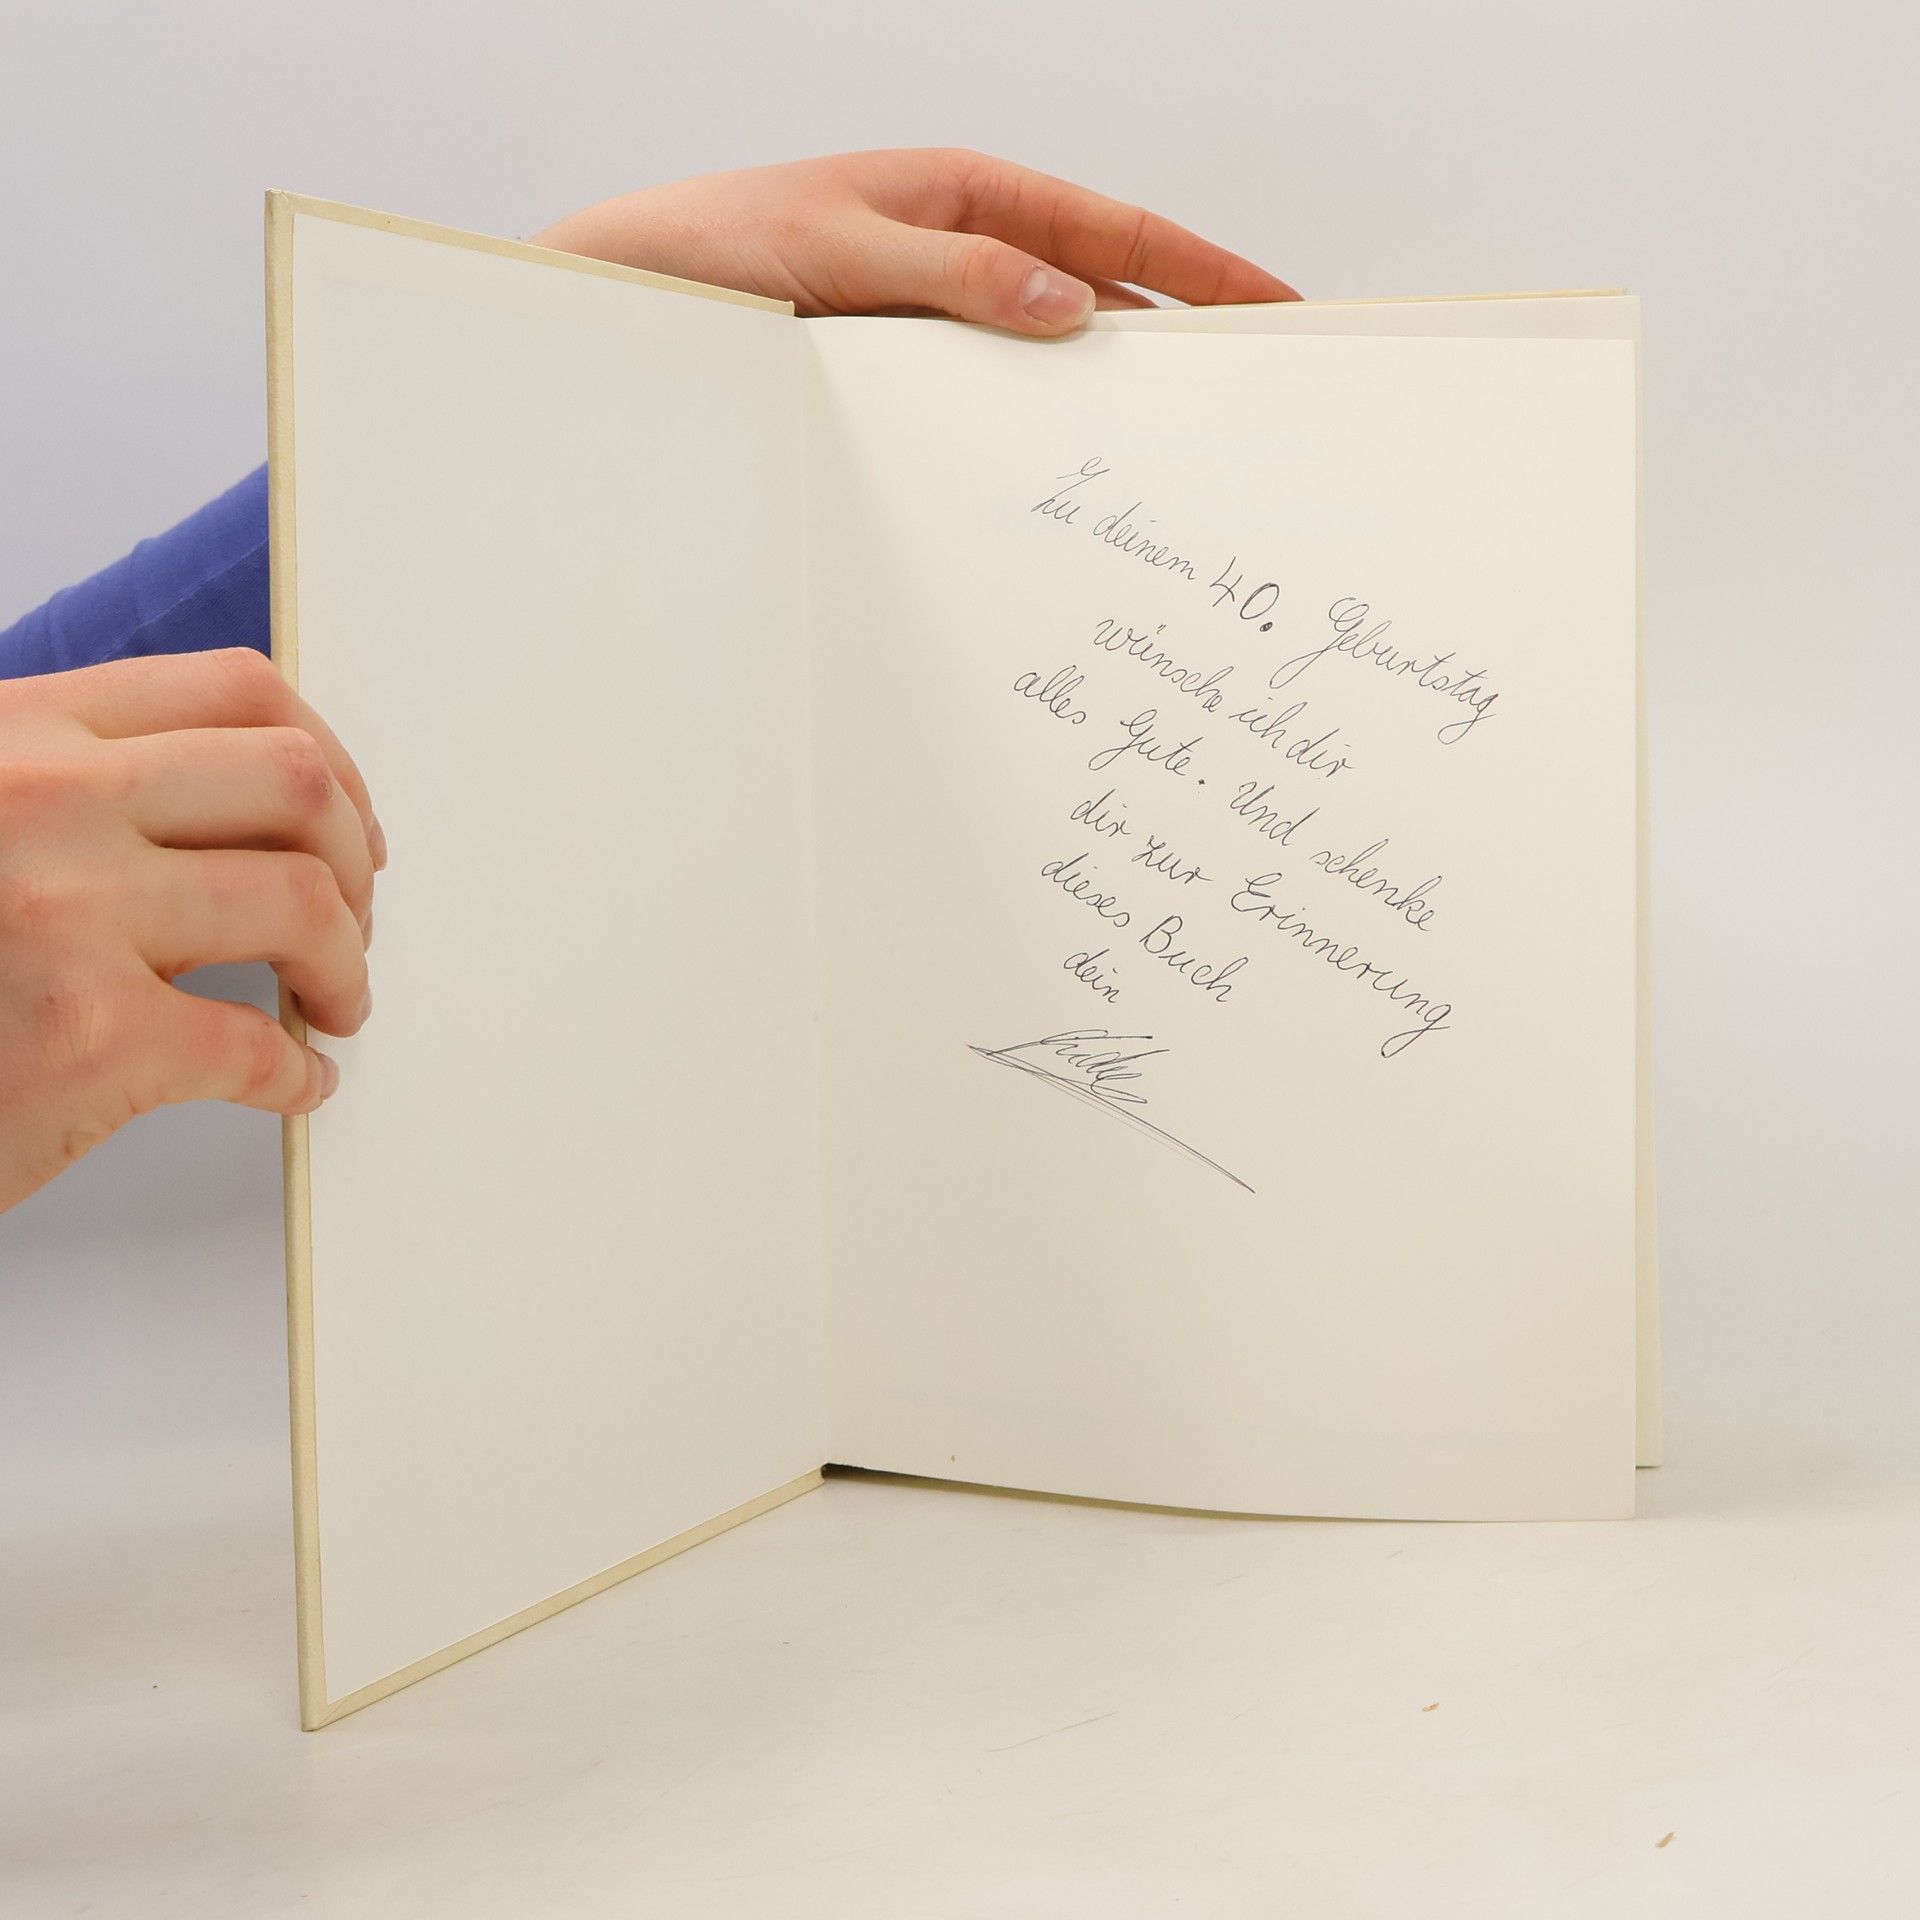 Zu deinem 40. Geburtstag
wünsche ich dir
alles Gute. Und schenke
dir zur Erinnerung
dieses Buch
dein